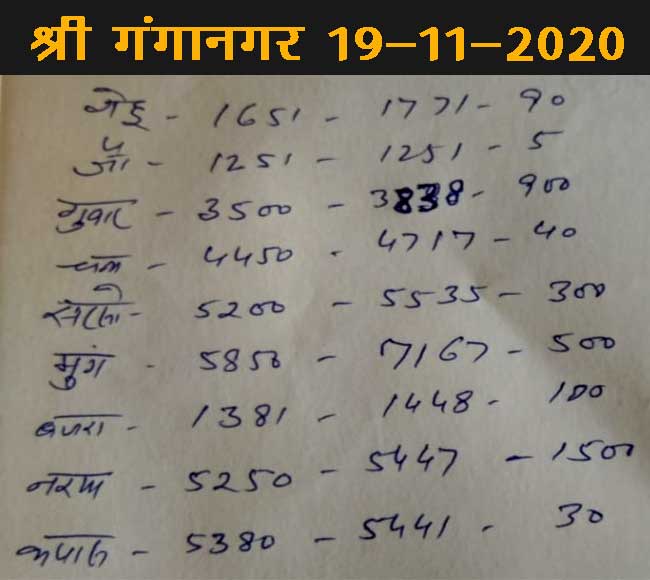 श्री गंगानगर 19-11-2020
गेहू - 1651 - 1771 - 90
जौ - 1251 - 1251 - 5
गुवार - 3500 - 3838 - 900
चना - 4450 - 4717 - 40
सरसो - 5200 - 5535 - 300
मुंग - 5850 - 7167 - 500
बाजरा - 1381 - 1448 - 100
नरमा - 5250 - 5447 - 1500
कपास - 5380 - 5441 - 30